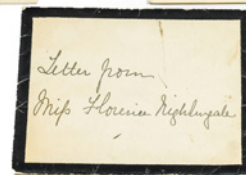 Letter from
Miss Florence Nightingale